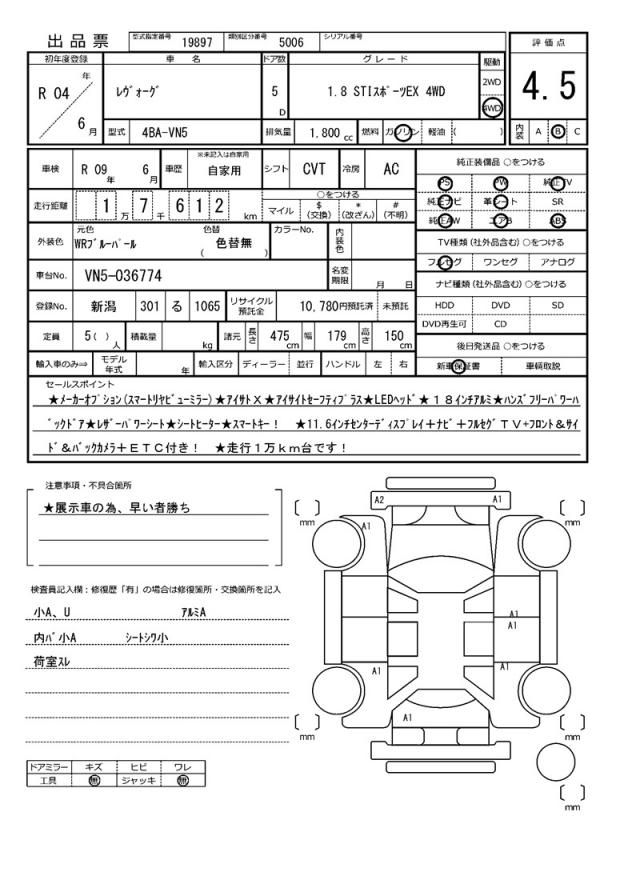 出品票 型式指定番号 19897 類別区分番号 5006 シリアル番号
評価点
4.5
内装 A B C
初年度登録 車名 ドア数 グレード 駆動
R 04 年 6 月 レヴォーグ 5 D 1.8 STIスポーツEX 4WD 2WD 4WD
型式 4BA-VN5 排気量 1.800 cc 燃料 ガソリン 軽油 ( )
車検 R 09 年 6 月 車歴 ※未記入は自家用 自家用 シフト CVT 冷房 AC
走行距離 1 万 7 千 6 1 2 km ○をつける
マイル $(交換) *(改ざん) #(不明)
外装色 元色 WRブルーパール 色替 ( 色替無 ) カラーNo. 内装色
車台No. VN5-036774 名変期限 月 日
登録No. 新潟 301 る 1065 リサイクル預託金 10,780円預託済 未預託
定員 5( ) 人 積載量 kg 諸元 長さ 475 cm 幅 179 cm 高さ 150 cm
輸入車のみ⇒ モデル年式 年 輸入区分 ディーラー 並行 ハンドル 左 右
純正装備品 ○をつける
PS PW 純正TV
純正ナビ 革シート SR
純正AW エアB ABS
TV種類(社外品含む)○をつける
フルセグ ワンセグ アナログ
ナビ種類(社外品含む)○をつける
HDD DVD SD
DVD再生可 CD
後日発送品 ○をつける
新車保証書 車輌取説
セールスポイント
★メーカーオプション(スマートリヤビューミラー)★アイサイトX★アイサイトセーフティプラス★LEDヘッド★18インチアルミ★ハンズフリーパワーバ
ックドア★レザーパワーシート★シートヒーター★スマートキー! ★11.6インチセンターディスプレイ+ナビ+フルセグTV+フロント&サイ
ド&バックカメラ+ETC付き! ★走行1万km台です!
注意事項・不具合箇所
★展示車の為、早い者勝ち
検査員記入欄:修復歴「有」の場合は修復箇所・交換箇所を記入
小A、U アルミA
内バ小A シートシワ小
荷室スレ
ドアミラー キズ ヒビ ワレ
工具 無 ジャッキ 無
A2 A1
A1 A1
A1
A1
A1 A1
A1
mm mm
mm mm
mm